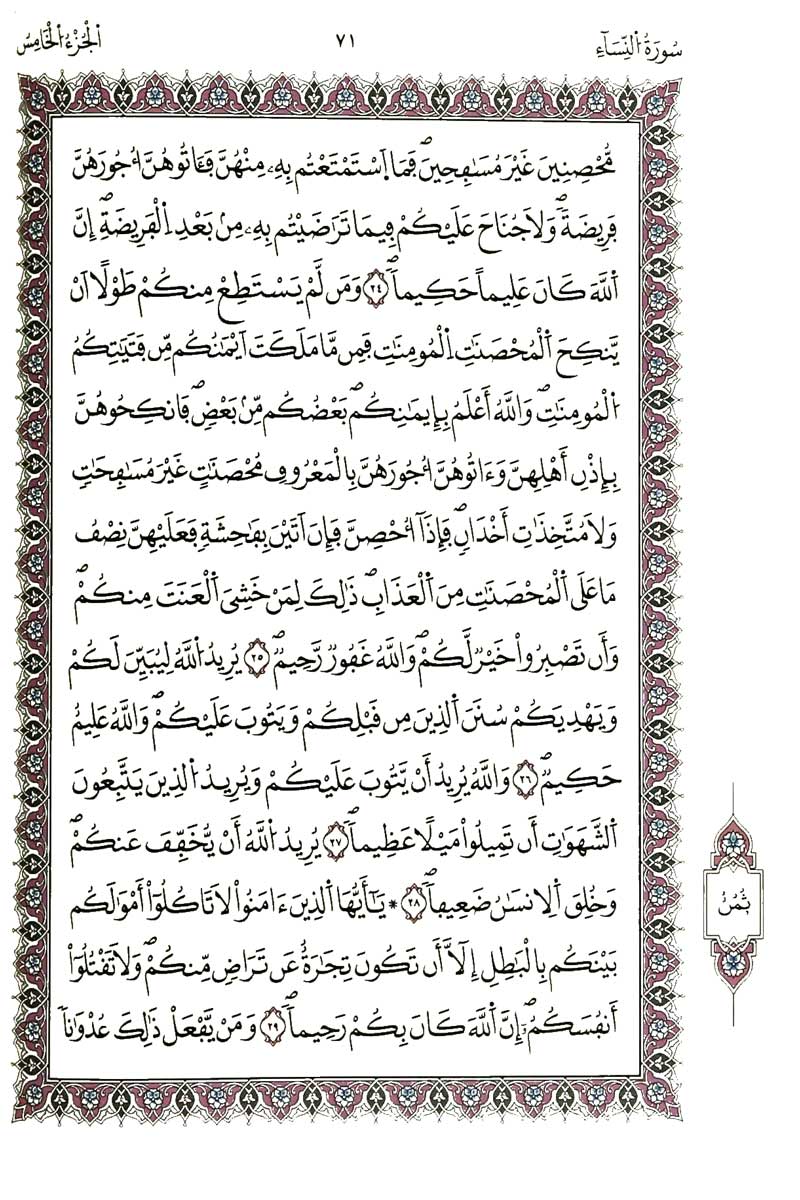 سُورَةُ النِّسَآءِ
٧١
الْجُزْءُ الْخَامِسُ
مُّحْصِنِينَ غَيْرَ مُسَٰفِحِينَۖ فَمَا اَ۪سْتَمْتَعْتُم بِهِۦ مِنْهُنَّ فَـَٔاتُوهُنَّ أُجُورَهُنَّ
فَرِيضَةٗۖ وَلَا جُنَاحَ عَلَيْكُمْ فِيمَا تَرَٰضَيْتُم بِهِۦ مِنۢ بَعْدِ اِ۬لْفَرِيضَةِۖ إِنَّ
اَ۬للَّهَ كَانَ عَلِيماً حَكِيماٗۖ ٢٤ وَمَن لَّمْ يَسْتَطِعْ مِنكُمْ طَوْلًا اَنْ
يَّنكِحَ اَ۬لْمُحْصَنَٰتِ اِ۬لْمُومِنَٰتِ فَمِن مَّا مَلَكَتَ اَيْمَٰنُكُم مِّن فَتَيَٰتِكُمُ
اُ۬لْمُومِنَٰتِۖ وَاللَّهُ أَعْلَمُ بِإِيمَٰنِكُمۖ بَعْضُكُم مِّنۢ بَعْضٖۖ فَانكِحُوهُنَّ
بِإِذْنِ أَهْلِهِنَّ وَءَاتُوهُنَّ أُجُورَهُنَّ بِالْمَعْرُوفِ مُحْصَنَٰتٍ غَيْرَ مُسَٰفِحَٰتٖ
وَلَا مُتَّخِذَٰتِ أَخْدَانٖۖ فَإِذَآ أُحْصِنَّ فَإِنَ اَتَيْنَ بِفَٰحِشَةٖ فَعَلَيْهِنَّ نِصْفُ
مَا عَلَى اَ۬لْمُحْصَنَٰتِ مِنَ اَ۬لْعَذَابِۖ ذَٰلِكَ لِمَنْ خَشِيَ اَ۬لْعَنَتَ مِنكُمْۖ
وَأَن تَصْبِرُواْ خَيْرٞ لَّكُمْۖ وَاللَّهُ غَفُورٞ رَّحِيمٞۖ ٢٥ يُرِيدُ اُ۬للَّهُ لِيُبَيِّنَ لَكُمْ
وَيَهْدِيَكُمْ سُنَنَ اَ۬لذِينَ مِن قَبْلِكُمْ وَيَتُوبَ عَلَيْكُمْۖ وَاللَّهُ عَلِيمٌ
حَكِيمٞۖ ٢٦ وَاللَّهُ يُرِيدُ أَنْ يَّتُوبَ عَلَيْكُمْ وَيُرِيدُ اُ۬لذِينَ يَتَّبِعُونَ
اَ۬لشَّهَوَٰتِ أَن تَمِيلُواْ مَيْلًا عَظِيماٗۖ ٢٧ يُرِيدُ اُ۬للَّهُ أَنْ يُّخَفِّفَ عَنكُمْۖ
وَخُلِقَ اَ۬لِانسَٰنُ ضَعِيفاٗۖ ٢٨ * يَٰٓأَيُّهَا اَ۬لذِينَ ءَامَنُواْ لَا تَاكُلُوٓاْ أَمْوَٰلَكُم
بَيْنَكُم بِالْبَٰطِلِ إِلَّآ أَن تَكُونَ تِجَٰرَةٌ عَن تَرَاضٖ مِّنكُمْۖ وَلَا تَقْتُلُوٓاْ
أَنفُسَكُمُۥٓۖ إِنَّ اَ۬للَّهَ كَانَ بِكُمْ رَحِيماٗۖ ٢٩ وَمَنْ يَّفْعَلْ ذَٰلِكَ عُدْوَٰناٗ
ثُمُنُ